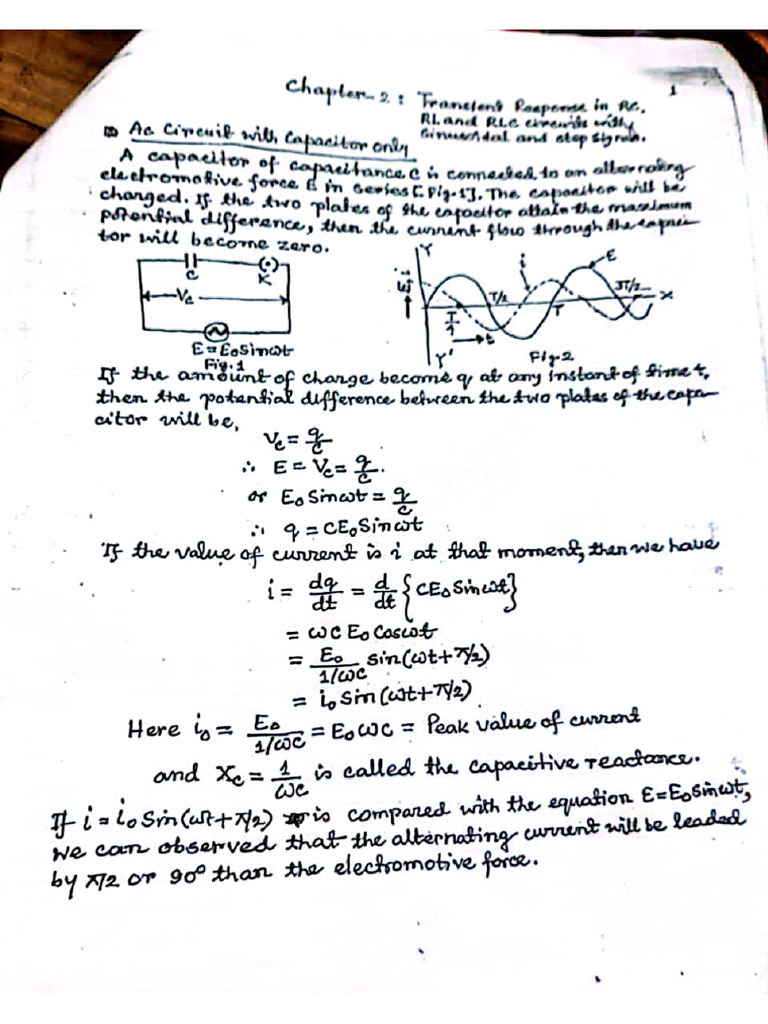 Chapter-2: Transient Response in RC,
RL and RLC circuits with
Sinusoidal and step signals.
1
Ac Circuit with Capacitor only
A capacitor of capacitance C is connected to an alternating
electromotive force E in series [Fig.1]. The capacitor will be
charged. If the two plates of the capacitor attain the maximum
potential difference, then the current flow through the capaci-
tor will become zero.
C
K
Vc
E = E₀Sinωt
Fig.1
Y
i
E
T/2
T
3T/2
X
t
Y'
Fig-2
If the amount of charge become q at any instant of time t,
then the potential difference between the two plates of the capa-
citor will be,
Vc = q/c
∴ E = Vc = q/c.
or E₀Sinωt = q/c
∴ q = CE₀Sinωt
If the value of current is i at that moment, then we have
i = dq/dt = d/dt {CE₀Sinωt}
= ωC E₀ Cosωt
= E₀/(1/ωC) sin(ωt+π/2)
= i₀ Sin(ωt+π/2)
Here i₀ = E₀/(1/ωC) = E₀ωC = Peak value of current
and Xc = 1/ωC is called the capacitive reactance.
If i = i₀ Sin(ωt+π/2) is compared with the equation E = E₀Sinωt,
we can observed that the alternating current will be leaded
by π/2 or 90° than the electromotive force.